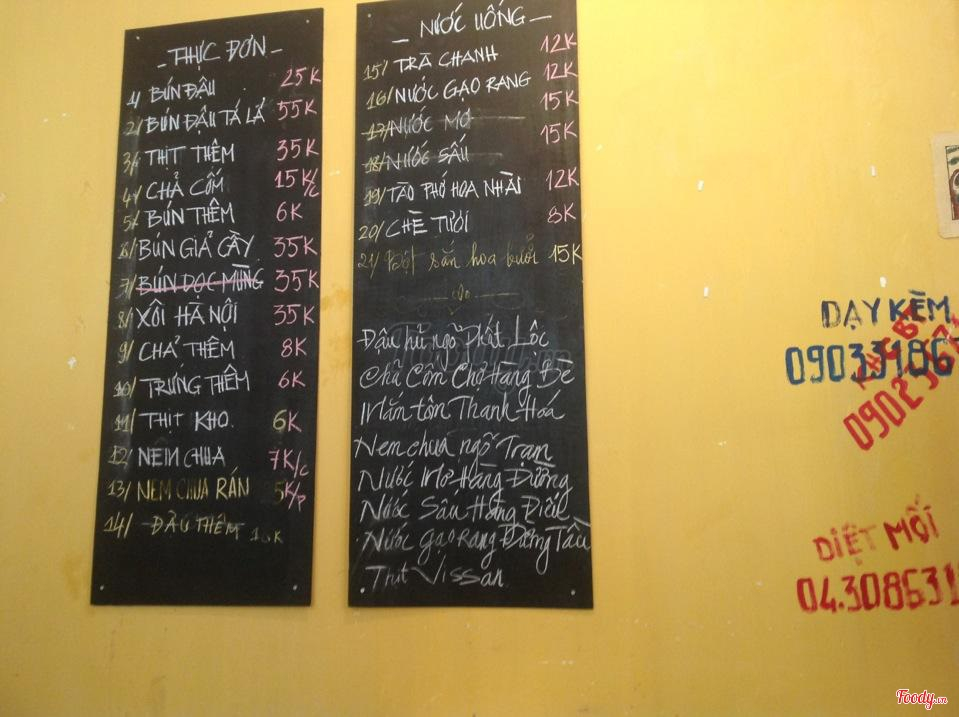 - THỰC ĐƠN -
1/ BÚN ĐẬU 25K
2/ BÚN ĐẬU TÁ LẢ 55K
3/ THỊT THÊM 35K
4/ CHẢ CỐM 15K/c
5/ BÚN THÊM 6K
6/ BÚN GIẢ CẦY 35K
7/ BÚN DỌC MÙNG 35K
8/ XÔI HÀ NỘI 35K
9/ CHẢ THÊM 8K
10/ TRỨNG THÊM 6K
11/ THỊT KHO. 6K
12/ NEM CHUA 7K/c
13/ NEM CHUA RÁN 35K/P
14/ ĐẬU THÊM K
- NƯỚC UỐNG -
15/ TRÀ CHANH 12K
16/ NƯỚC GẠO RANG 12K
17/ NƯỚC MƠ 15K
18/ NƯỚC SẤU 15K
19/ TÀO PHỚ HOA NHÀI 12K
20/ CHÈ TƯƠI 8K
21/ Bột sắn hoa bưởi 15K
Đậu hũ ngõ Phất Lộc
Chả Cốm Chợ Hàng Bè
Mắm tôm Thanh-Hoá
Nem chua ngõ Trạm
Nước Mơ Hàng Đường
Nước Sấu Hàng Điếu
Nước gạo Rang Đường Tàu
Thịt Vissan
DẠY KÈM
0903318
0902
DIỆT MỐI
04.30863
Foody.vn